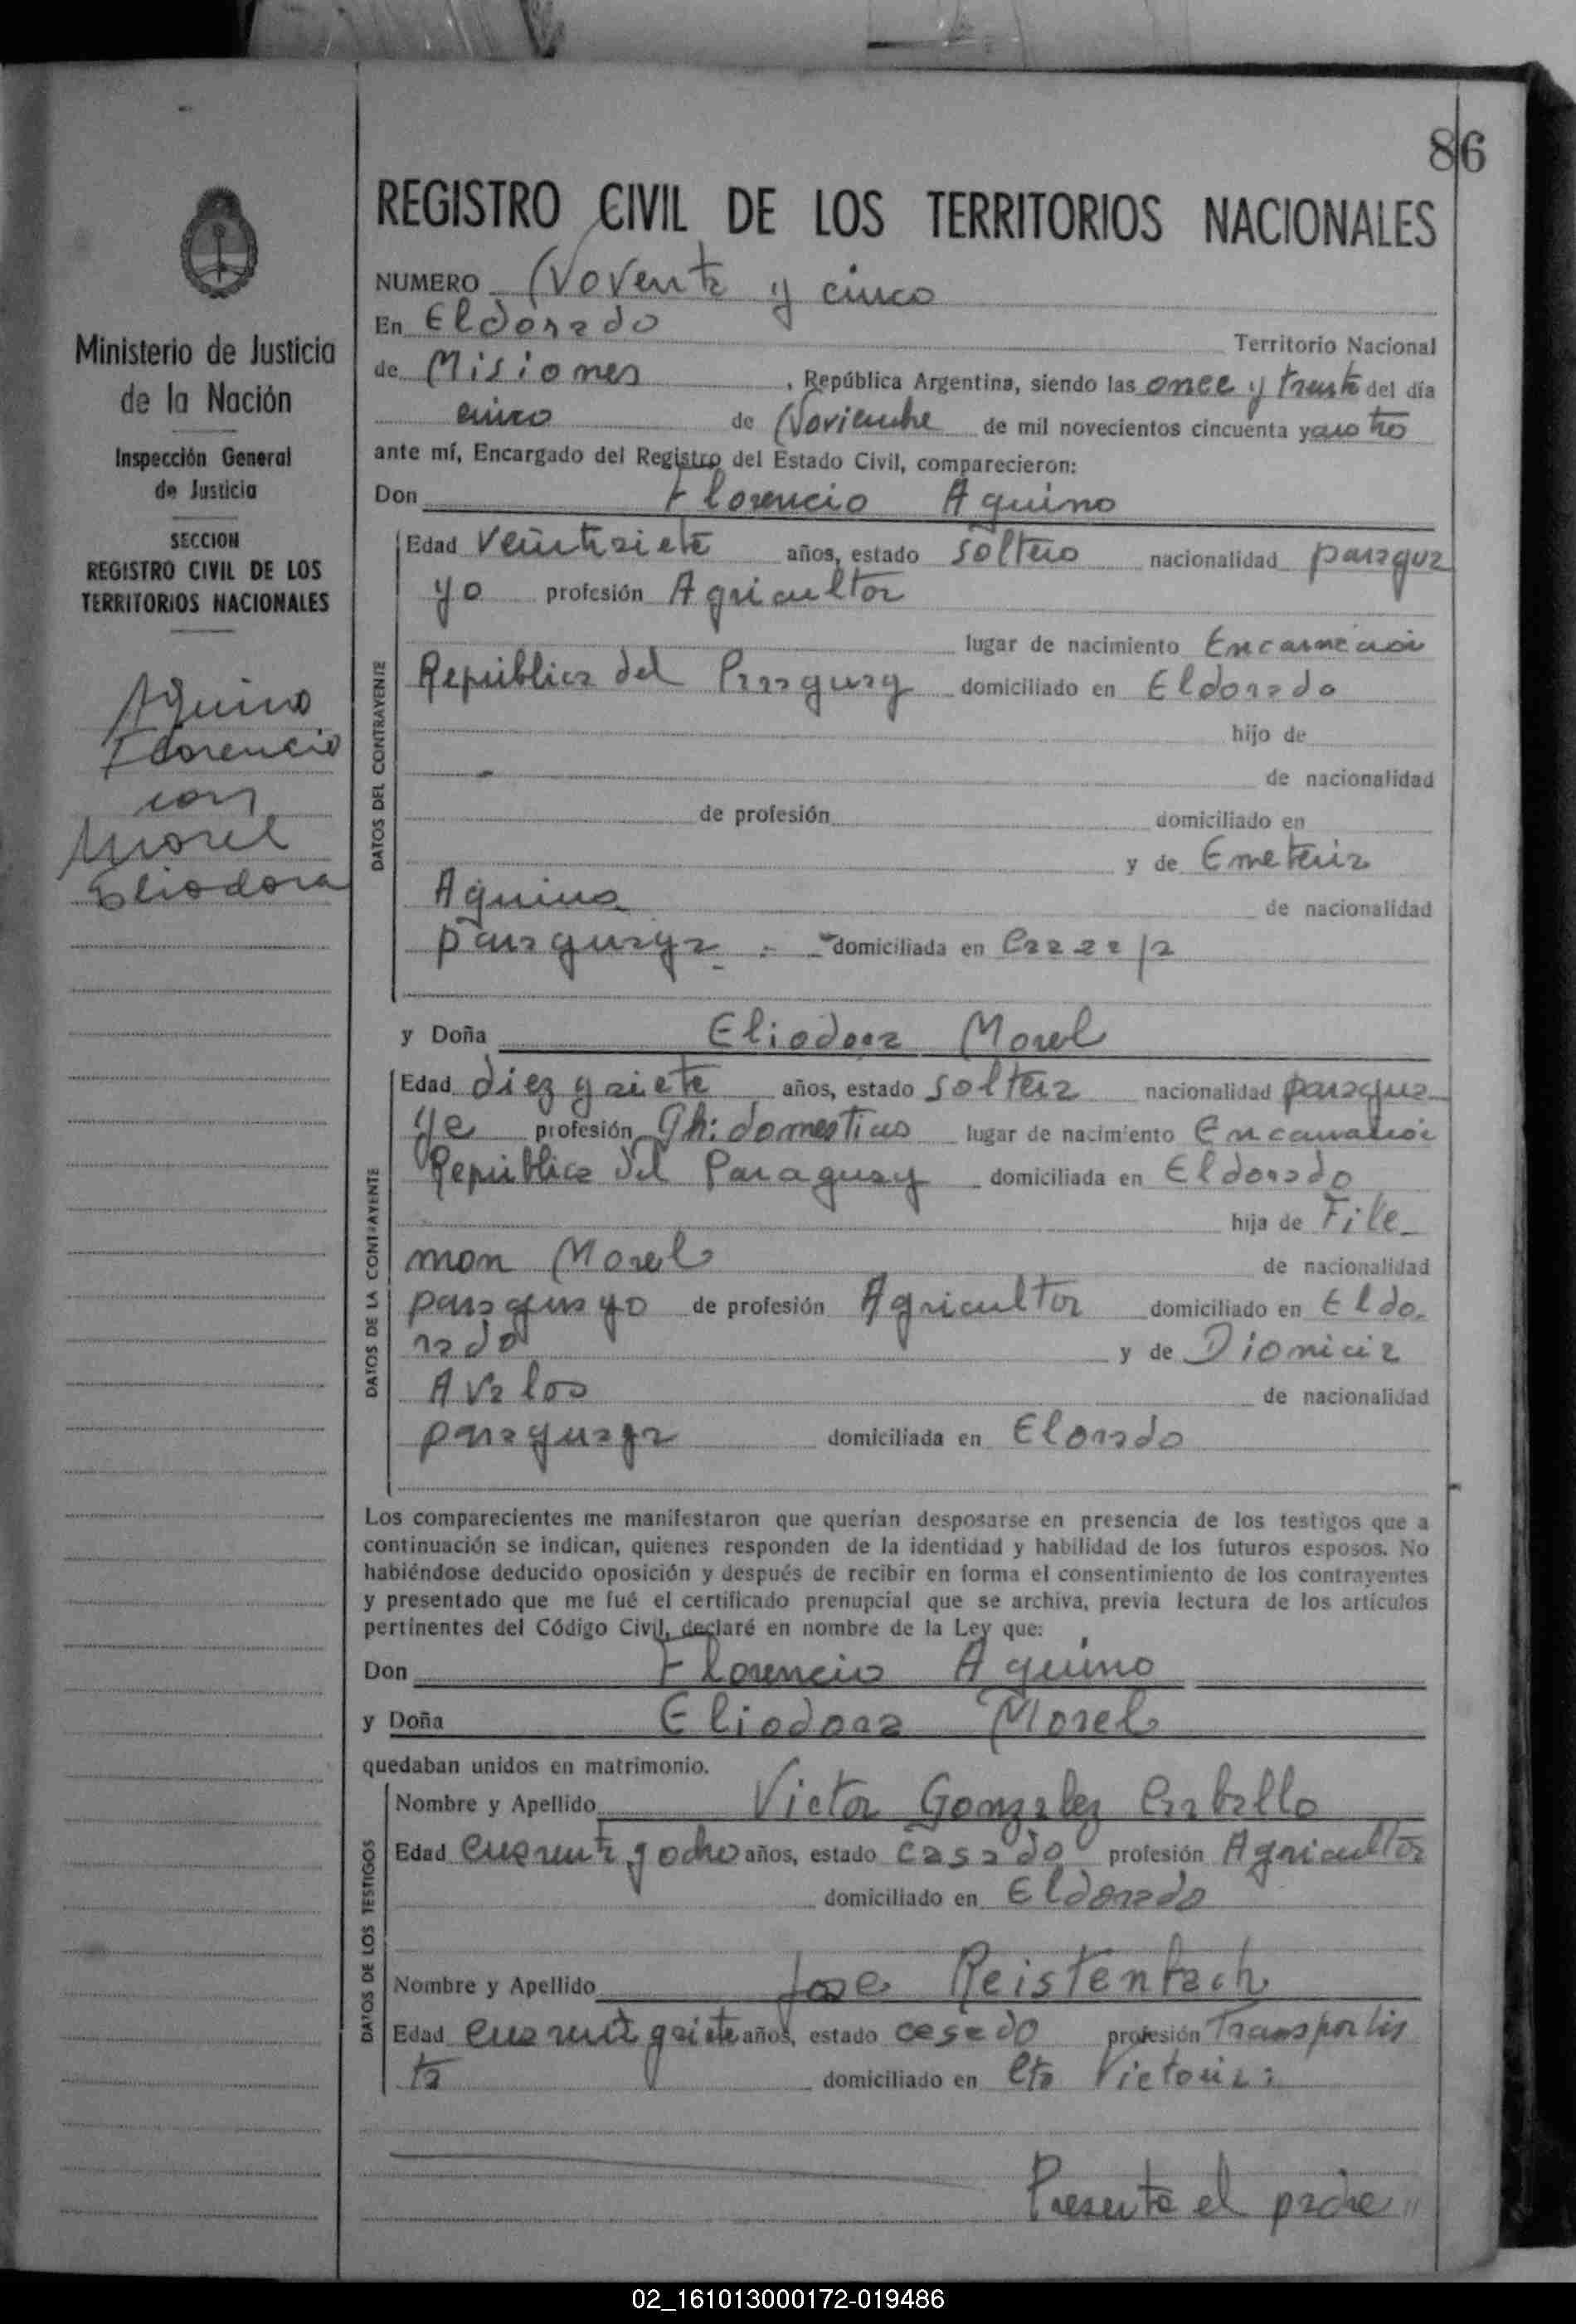 86
REGISTRO CIVIL DE LOS TERRITORIOS NACIONALES
NUMERO Noventa y cinco
En Eldorado Territorio Nacional
de Misiones, República Argentina, siendo las once y treinta del día
cinco de Noviembre de mil novecientos cincuenta y cuatro
ante mí, Encargado del Registro del Estado Civil, comparecieron:
Don Florencio Aquino
DATOS DEL CONTRAYENTE
Edad veintisiete años, estado soltero nacionalidad paragua
yo profesión Agricultor
lugar de nacimiento Encarnación
República del Paraguay domiciliado en Eldorado
hijo de
de nacionalidad
de profesión domiciliado en
y de Emeteria
Aquino de nacionalidad
paraguaya domiciliada en
y Doña Eliodora Morel
DATOS DE LA CONTRAYENTE
Edad diez y siete años, estado soltera nacionalidad paragua
ya profesión Qh: domesticos lugar de nacimiento Encarnación
República del Paraguay domiciliada en Eldorado
hija de File
mon Morel de nacionalidad
paraguayo de profesión Agricultor domiciliado en Eldo
rado y de Dionicia
Avalos de nacionalidad
paraguaya domiciliada en Elorado
Los comparecientes me manifestaron que querían desposarse en presencia de los testigos que a
continuación se indican, quienes responden de la identidad y habilidad de los futuros esposos. No
habiéndose deducido oposición y después de recibir en forma el consentimiento de los contrayentes
y presentado que me fué el certificado prenupcial que se archiva, previa lectura de los artículos
pertinentes del Código Civil, declaré en nombre de la Ley que:
Don Florencio Aquino
y Doña Eliodora Morel
quedaban unidos en matrimonio.
DATOS DE LOS TESTIGOS
Nombre y Apellido Victor Gonzalez Carballo
Edad cuarenta y ocho años, estado casado profesión Agricultor
domiciliado en Eldorado
Nombre y Apellido Jose Reistenbach
Edad cuarenta y siete años, estado casado profesión Transportis
ta domiciliado en Pto Victoria:
Presente el padre
Ministerio de Justicia
de la Nación
Inspección General
de Justicia
SECCION
REGISTRO CIVIL DE LOS
TERRITORIOS NACIONALES
Aquino
Florencio
con
Morel
Eliodora
02_161013000172-019486